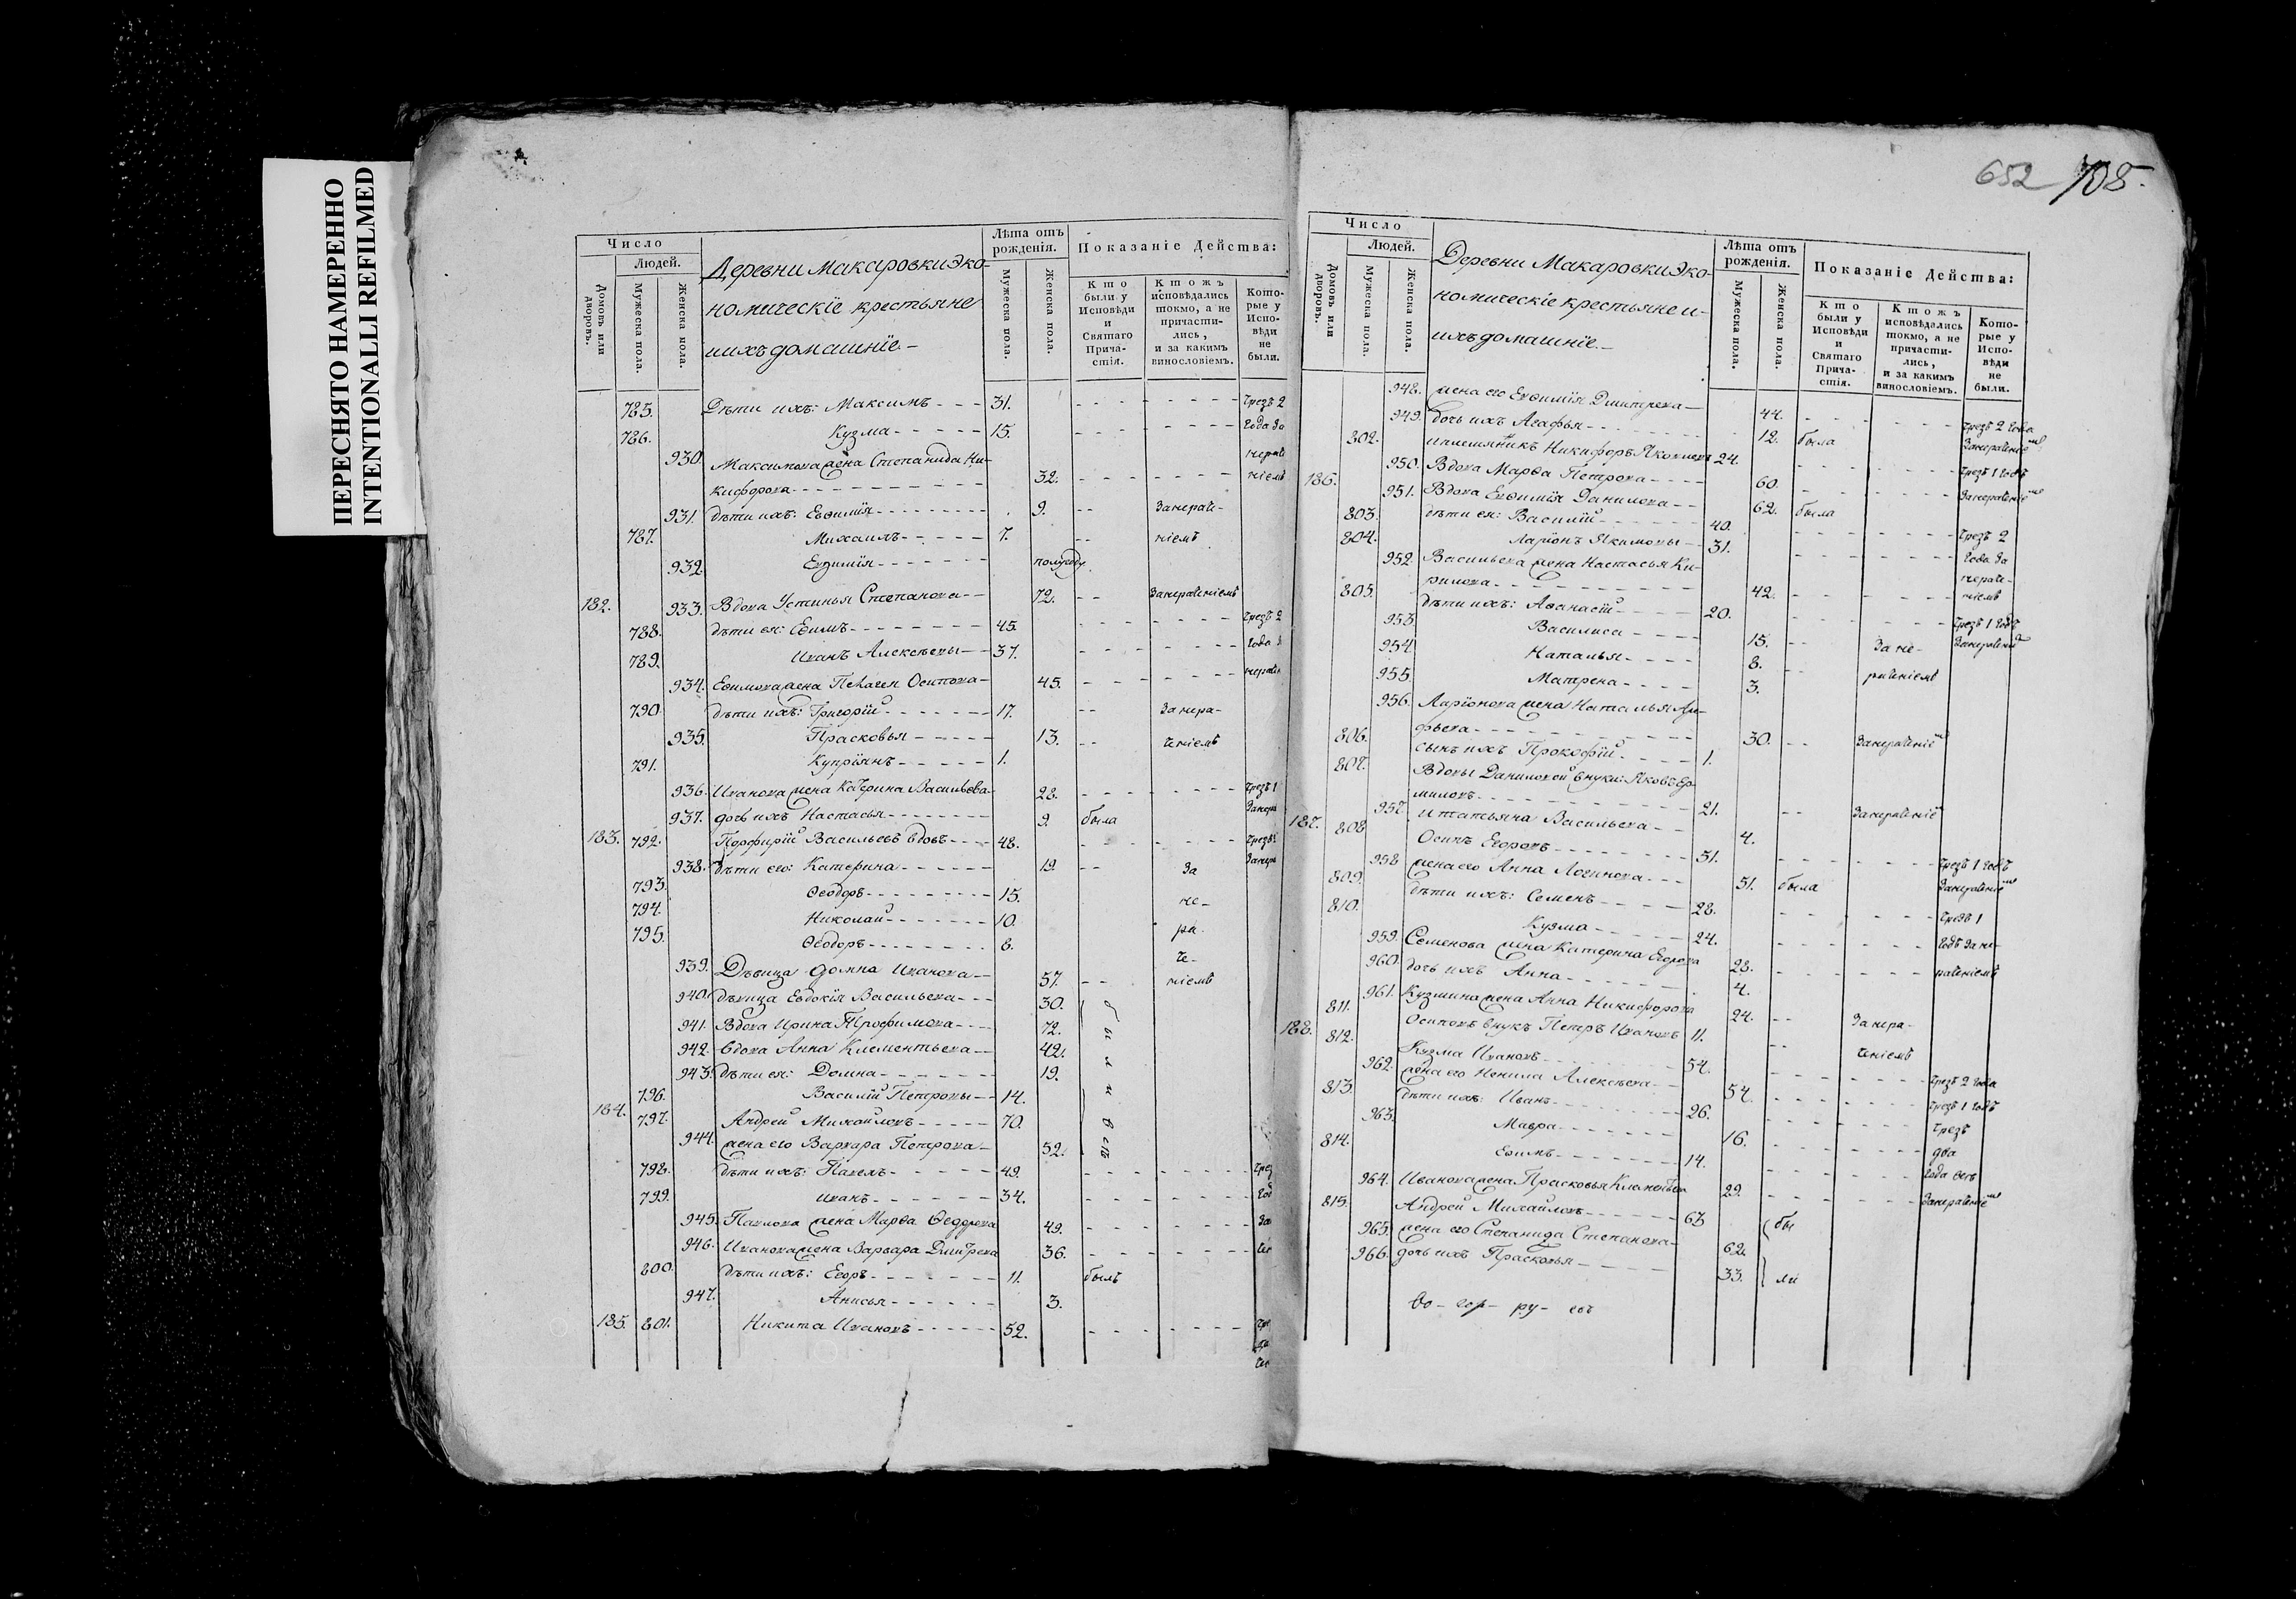 ПЕРЕСНЯТО НАМЕРЕННО
INTENTIONALLI REFILMED
652 708.
Число
Людей.
Домовъ или дворовъ.
Мужеска пола.
Женска пола.
Деревни Макаровки Эко-
номическіе крестьяне
и ихъ домашніе.-
Лѣта отъ рожденія.
Мужеска пола.
Женска пола.
Показаніе Дѣйства:
Кто были у Исповѣди и Святаго Прича-стія.
Ктожъ исповѣдались токмо, а не причасти-лись, и за какимъ винословіемъ.
Кото-рые у Испо-вѣди не были.
785. Дѣти ихъ: Максимъ - - - 31. - - - - - - - - чрезъ 2
786. Кузма - - - - - 15. - - - - - - - - года за
930. Максимова жена Степанида Ни- нерач
кифорова - - - - - - - - - - 32. - - - - - - - - ніемъ
931. дѣти ихъ: Евѳимія - - - - - - - - 9. - - За нерач-
787. Михаилъ - - - - - 7. - - ніемъ
932. Евѳимія - - - - - - - полугоду
182. 933. Вдова Устинья Степанова - - 72. - - за нераченіемъ
788. дѣти ея: Евимъ - - - - - - - - 45. - - - - - - - - чрезъ 2
789. Иванъ Алексѣевы - - 37. - - - - - - - - года з
934. Евимова жена Пелагея Осипова - 45. - - - - - - - - нерач
790. дѣти ихъ: Григорій - - - - - - - 17. - - За нера-
935. Прасковья - - - - - 13. - - ченіемъ
791. Купріянъ - - - - - - 1.
936. Иванова жена Катерина Васильева - 28. - - - - - - - - чрезъ 1
937. дочь ихъ Настасья - - - - - - - - 9. была за нера
183. 792. Порфирій Васильевъ вдовъ - - - 48. - - - - - - - - чрезъ 1
938. дѣти его: Катерина - - - - - - 19. - - За за нера
793. Ѳеодоръ - - - - - - - - 15. не-
794. Николай - - - - - - - 10. ра-
795. Ѳеодоръ - - - - - - - - 8. че-
939. Дѣвица Домна Иванова - - 57. - - ніемъ
940. дѣвица Евдокія Васильева - - - 30. б
941. Вдова Ирина Трофимова - - - - 72. ы
942. вдова Анна Клементьева - - 42. л
943. дѣти ея: Домна - - - - - - - 19. и
796. Василій Петровы - - 14.
184. 797. Андрей Михайловъ - - - - - 70. в
944. жена его Варвара Петрова - 52. сѣ
798. дѣти ихъ: Павелъ - - - - - - 49. - - - - - - - - чрез
799. Иванъ - - - - - - - 34. год
945. Павлова жена Марѳа Ѳедорова 49. - - - - - - - - за
946. Иванова жена Варвара Дмитрева 36. - - - - - - - -
800. дѣти ихъ: Егоръ - - - - - - - - 11. былъ
947. Анисья - - - - - - 3.
185. 801. Никита Ивановъ - - - - - - 52. - - - - - - - -
Число
Людей.
Домовъ или дворовъ.
Мужеска пола.
Женска пола.
Деревни Макаровки Эко-
номическіе крестьяне и-
ихъ домашніе.-
Лѣта отъ рожденія.
Мужеска пола.
Женска пола.
Показаніе Дѣйства:
Кто были у Исповѣди и Святаго Прича-стія.
Ктожъ исповѣдались токмо, а не причасти-лись, и за какимъ винословіемъ.
Кото-рые у Испо-вѣди не были.
948. жена его Евѳимія Дмитрева - 44. - - - - - чрезъ 2 года
949. дочь ихъ Агафья - - - - - - - - 12. была за нераченіемъ
802. и племянникъ Никифоръ Яковлевъ 24. - - - - - чрезъ 1 годъ
186. 950. Вдова Марѳа Петрова - - - - - 60. - - - - - за нераченіемъ
951. Вдова Евѳимія Данилова - - 62. была
803. дѣти ея: Василій - - - - - - - 40. - - - - - - чрезъ 2
804. Ларіонъ Якимовы - - 31. - - - - - - года за
952. Васильева жена Настасья Ки- нерače-
рилова - - - - - - - - - - 42. - - - - - - ніемъ
805. дѣти ихъ: Аѳанасій - - - - - 20. - - - - - - чрезъ 1 годъ
953. Василиса - - - - 15. - - За не- за нераченіемъ
954. Наталья - - - - - 8. - - раченіемъ
955. Матрена - - - - 3.
956. Ларіонова жена Наталья Ан-
фьева - - - - - - - - - - - - 30. - - За нераченіемъ
806. сынъ ихъ Прокофій - - - - - 1.
807. Вдовы Даниловой внуки: Яковъ Ер-
миловъ - - - - - - - - - - - 21. - - За нераченіемъ
957. и Татьяна Васильева - - 4.
187. 808. Осипъ Егоровъ - - - - - - - - 51. - - - - - - чрезъ 1 годъ
958. жена его Анна Логинова - - - 51. была за нераченіемъ
809. дѣти ихъ: Семенъ - - - - - - 28. - - - - - - чрезъ 1
810. Кузма - - - - - - 24. - - - - - - годъ за не-
959. Семенова жена Катерина Егорова 28. - - - - - - раченіемъ
960. дочь ихъ Анна - - - - - - - 4.
961. Кузмина жена Анна Никифорова 24. - - За нера-
811. Осиповъ внукъ Петръ Ивановъ 11. - - ченіемъ
188. 812. Кузма Ивановъ - - - - - - - - 54. - - - - - - чрезъ 2 года
962. жена его Ненила Алексѣева - - 54. - - - - - - чрезъ 1 годъ
813. дѣти ихъ: Иванъ - - - - - - - - 26. - - - - - - чрезъ
963. Мавра - - - - - - - 16. - - - - - - два
814. Евимъ - - - - - - - - 14. - - - - - - года
964. Иванова жена Прасковья 29. - - - - - - за нераченіемъ
815. Андрей Михайловъ - - - - - - 63 бы
965. жена его Степанида Степанова - 62.
966. дочь ихъ Прасковья - - - - - 33. ли